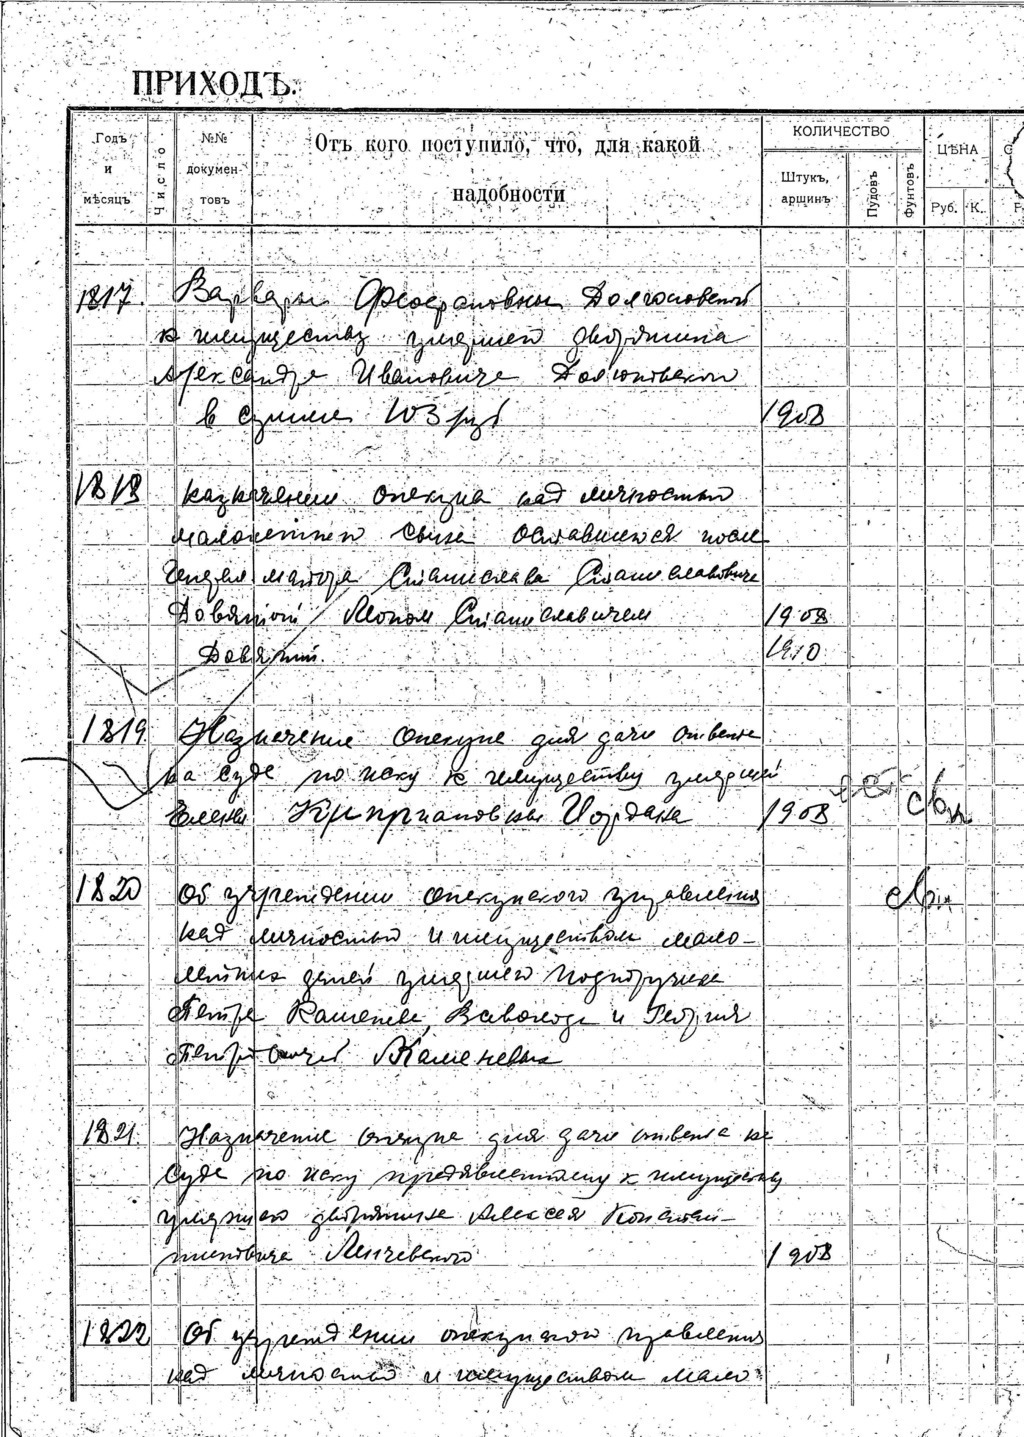 ПРИХОДЪ.
Годъ и мѣсяцъ
Число
№№ докумен- товъ
Отъ кого поступило, что, для какой надобности
КОЛИЧЕСТВО
Штукъ, аршинъ
Пудовъ
Фунтовъ
ЦѢНА
Руб. К.
1817. Варвары
к имуществу умершего дворянина
Александра Ивановича
в сумме 103 руб 1908
1818 назначении опекуна над личностью
малолетнего сына оставшегося после
Генерал майора Станислава Станиславовича
Довятой Леоном Станиславичем 1908
Довятт. 1910
1819 Назначение опекуна для дачи ответа
на суде по иску к имуществу умершей
Елены Киприановны Иордана 1908
1820 Об учреждении опекунского управления
над личностью и имуществом мало-
летних детей умершего подпоручика
Петра Каменева, Всеволода и Георгия
Петровичей Каменевых
1821. Назначение опекуна для дачи ответа на
суде по иску предъявленному к имуществу
умершего дворянина Алексея Констан-
тиновича Линчевского 1908
1822 Об учреждении опекунского правления
над личностью и имуществом мало